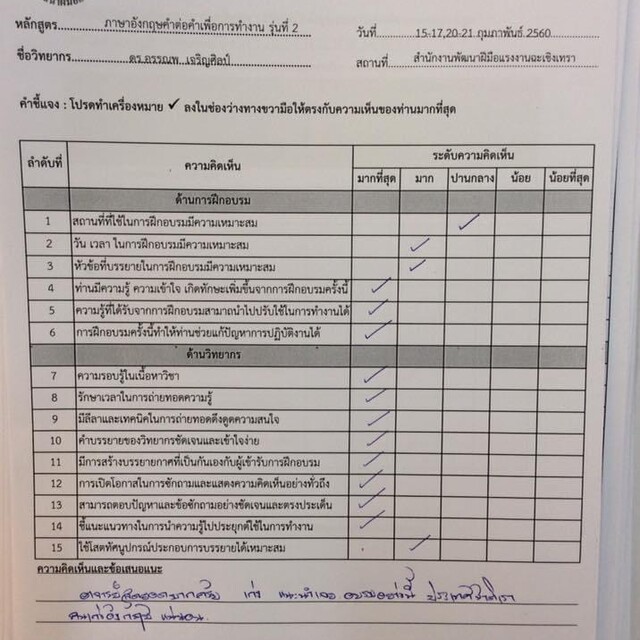 หลักสูตร ภาษาอังกฤษคำต่อคำเพื่อการทำงาน รุ่นที่ 2 วันที่ 15-17,20-21 กุมภาพันธ์ 2560
ชื่อวิทยากร ดร.อรรณพ เจริญศิลป์ สถานที่ สำนักงานพัฒนาฝีมือแรงงานฉะเชิงเทรา
คำชี้แจง : โปรดทำเครื่องหมาย ✓ ลงในช่องว่างทางขวามือให้ตรงกับความเห็นของท่านมากที่สุด
ลำดับที่ ความคิดเห็น ระดับความคิดเห็น
มากที่สุด มาก ปานกลาง น้อย น้อยที่สุด
ด้านการฝึกอบรม
1 สถานที่ที่ใช้ในการฝึกอบรมมีความเหมาะสม ✓
2 วัน เวลา ในการฝึกอบรมมีความเหมาะสม ✓
3 หัวข้อที่บรรยายในการฝึกอบรมมีความเหมาะสม ✓
4 ท่านมีความรู้ ความเข้าใจ เกิดทักษะเพิ่มขึ้นจากการฝึกอบรมครั้งนี้ ✓
5 ความรู้ที่ได้รับจากการฝึกอบรมสามารถนำไปปรับใช้ในการทำงานได้ ✓
6 การฝึกอบรมครั้งนี้ทำให้ท่านช่วยแก้ปัญหาการปฏิบัติงานได้ ✓
ด้านวิทยากร
7 ความรอบรู้ในเนื้อหาวิชา ✓
8 รักษาเวลาในการถ่ายทอดความรู้ ✓
9 มีลีลาและเทคนิคในการถ่ายทอดดึงดูดความสนใจ ✓
10 คำบรรยายของวิทยากรชัดเจนและเข้าใจง่าย ✓
11 มีการสร้างบรรยายกาศที่เป็นกันเองกับผู้เข้ารับการฝึกอบรม ✓
12 การเปิดโอกาสในการซักถามและแสดงความคิดเห็นอย่างทั่วถึง ✓
13 สามารถตอบปัญหาและข้อซักถามอย่างชัดเจนและตรงประเด็น ✓
14 ชี้แนะแนวทางในการนำความรู้ไปประยุกต์ใช้ในการทำงาน ✓
15 ใช้โสตทัศนูปกรณ์ประกอบการบรรยายได้เหมาะสม ✓
ความคิดเห็นและข้อเสนอแนะ
เก่ง